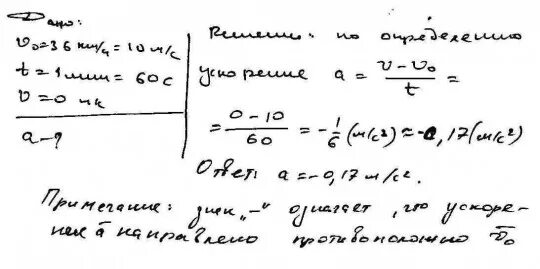 Дано:
v₀=36 км/ч=10 м/с
t=1 мин=60с
v=0 м/с
a-?
Решение: по определению
ускорение a = (v-v₀)/t =
= (0-10)/60 = -1/6 (м/с²) ≈ -0,17 (м/с²)
Ответ: a=-0,17 м/с².
Примечание: знак „-“ означает, что ускоре-
ние a̅ направлено противоположно v̅₀